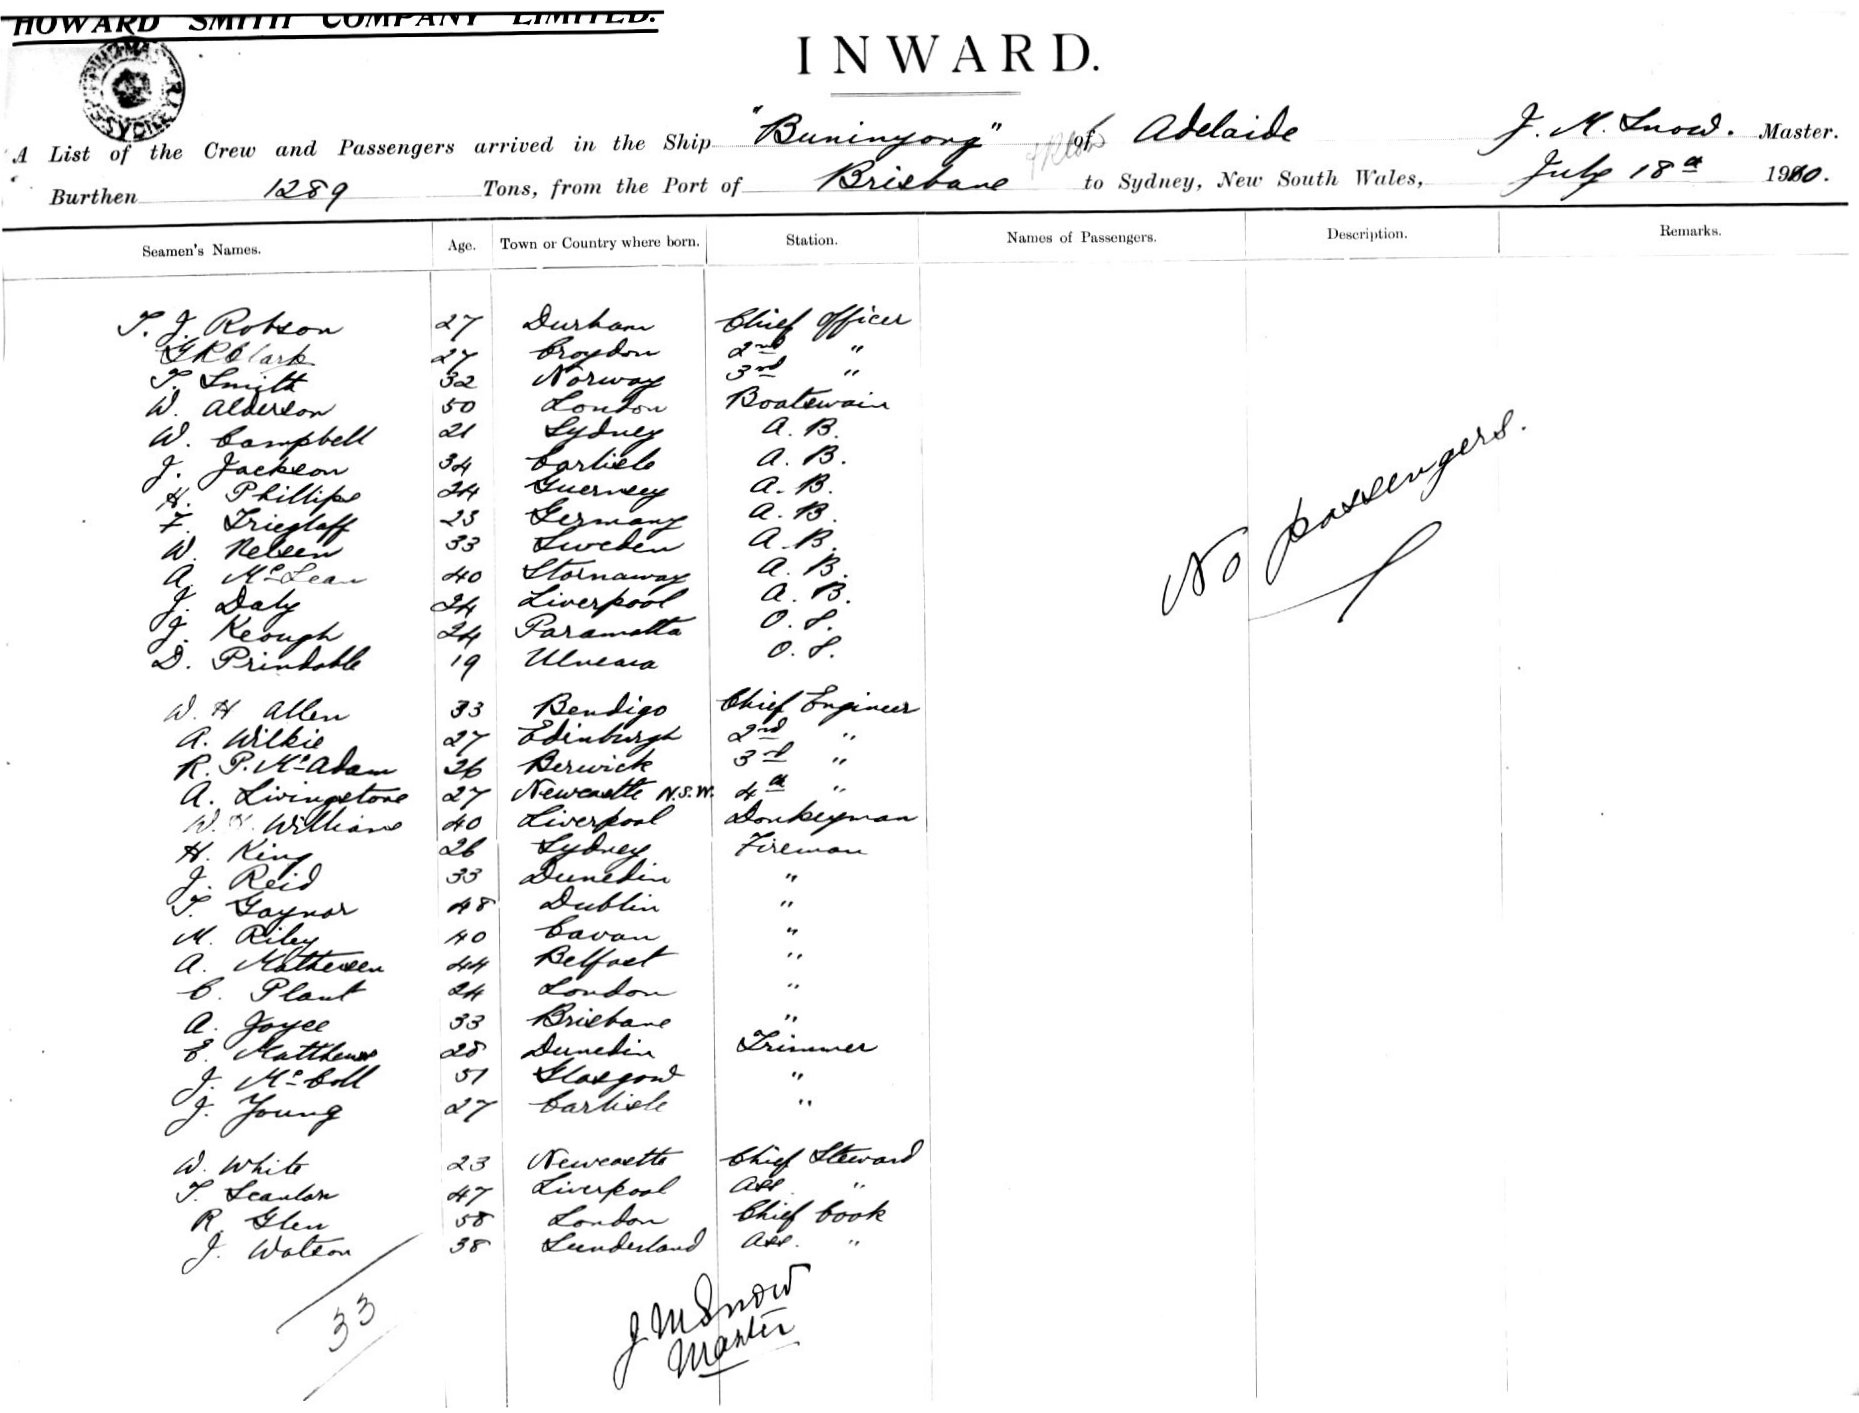 HOWARD SMITH COMPANY LIMITED.
INWARD.
A List of the Crew and Passengers arrived in the Ship "Buninyong" of Adelaide J. M. Snow. Master.
Burthen 1289 Tons, from the Port of Brisbane to Sydney, New South Wales, July 18th 1910.
Seamen's Names. Age. Town or Country where born. Station. Names of Passengers. Description. Remarks.
T. J. Robson 27 Durham Chief Officer
G R Clark 27 Croydon 2nd "
T. Smith 32 Norway 3rd "
W. Alderson 50 London Boatswain
W. Campbell 21 Sydney A. B.
J. Jackson 34 Carlisle A. B.
H. Phillips 24 Guernsey A. B.
F. Trieglaff 23 Germany A. B.
W. Nelsen 33 Sweden A. B.
A. McLean 40 Stornaway A. B.
J. Daly 24 Liverpool A. B.
J. Keough 24 Paramatta O. S.
D. Prindable 19 O. S.
No passengers.
W. H Allen 33 Bendigo Chief Engineer
A. Wilkie 27 Edinburgh 2nd "
R. P. McAdam 26 Berwick 3rd "
A. Livingstone 27 Newcastle N.S.W. 4th "
W. H. Williams 40 Liverpool Donkeyman
H. King 26 Sydney Fireman
J. Reid 33 Dunedin "
T. Gaynor 48 Dublin "
M. Riley 40 Cavan "
A. Mathewsen 44 Belfast "
C. Plant 24 London "
A. Joyce 33 Brisbane "
E. Matthews 28 Dunedin Trimmer
J. McColl 51 Glasgow "
J. Young 27 Carlisle "
W. White 23 Newcastle Chief Steward
T. Scanlan 47 Liverpool Ass "
R. Glen 58 London Chief Cook
J. Watson 38 Sunderland Ass. "
33
J M Snow
Master